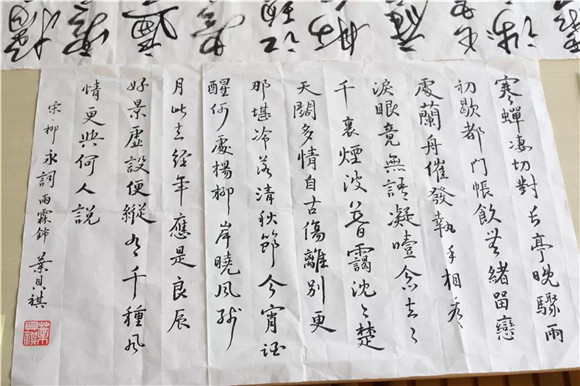 寒蟬凄切對长亭晚驟雨
初歇都门帳飲无緒留戀
處蘭舟催發執手相看
淚眼竟無語凝噎念去々
千裏煙波暮靄沈々楚
天闊多情自古傷離別更
那堪冷落清秋節今宵酒
醒何處楊柳岸曉风残
月此去经年應是良辰
好景虚設便縱有千種风
情更與何人説
宋·柳永詞雨霖鈴 葉貝祺